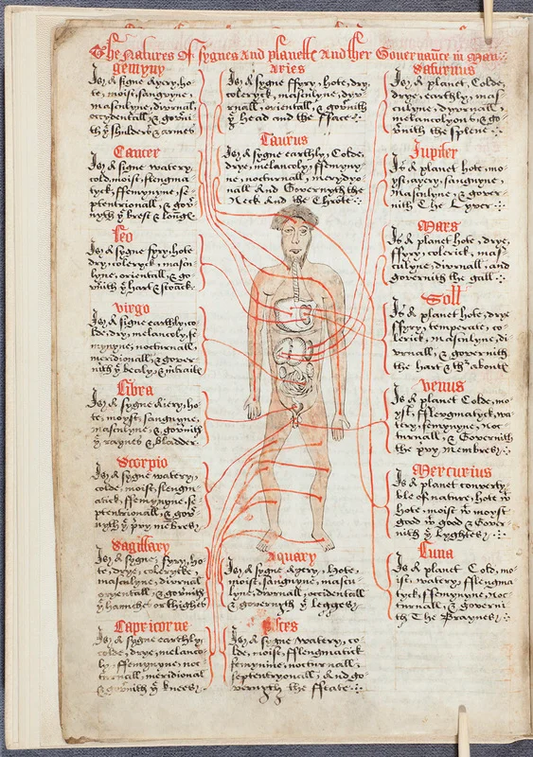 The Natures Of sygnes And planetts And ther Governaunce in Man
gemyny
Is A sygne Ayery, ho-
te, moist, sangvyne,
masculyne, divrnal,
occydentall & governi-
th yͤ shulders & armes
Cancer
Is A sygne watery,
cold, moist, fleugma
tyck, ffemynyne, se-
ptentrionall, & gov-
nyth yͤ brest & longs
Leo
Is A sygne fyry, hote
dry, coleryck, mascu
lyne, orientall, & go
vnith yͤ hart & stomack
Virgo
Is A signe earthly, co
lde, dry, melancoly, fe
mynyne, nocturnall,
meridionall, & gover
nith yͤ bealy & intrails
Libra
Is A sygne Aiery, ho-
te, moyst, sangvyne,
masculyne, & govnith
yͤ raynes & bladder
Scorpio
Is A sygne watery,
colde, moist, fleugm-
atick, ffemynyne, se-
ptentrionall, & gov-
nyth yͤ pryvy membres
Sagittary
Is A sygne fyry, ho-
te, drye, colerycke
masculyne, divrnal
oryentall, & govnith
yͤ hamche or thighes
Capricorne
Is A sygne earthly,
colde, drye, melanco-
ly, ffemynyne, noc
turnall, meridional
& govnith yͤ knees
Aries
Is A sygne ffyry, hote, dry,
coleryck, masculyne, dyv
rnall, orientall, & govnith
yͤ head and the fface
Taurus
Is A sygne earthly, Colde,
drye, melancoly, ffemyny-
ne, nocturnall, merydyo
nall And Governyth the
Neck And the Throte
Aquary
Is A sygne Ayery, hote,
moist, sangvyne, mascu-
lyne, divrnall, occidentall
& governyth yͤ legges
Pisces
Is A sygne watery, co
lde, moist, fflengmatick
femynine, nocturnall,
septentryonall, And go
vernyth the ffeate
Saturnus
Is A planet, Colde,
drye, earthly, mas
culyne, dyvrnall,
melancolyous & go-
vnith the splene
Jupiter
Is A planet hote, mo
yst, ayery, sangvyne,
masculyne & gover
nith The Lyver
Mars
Is A planet hote, drye,
ffyry, colerick, mas
culyne divrnall, and
governith the gall
Soll
Is A planet hote, drye
ffyry, temperate, co
lerick, masculyne, di
vrnall, & governith
the hart &
Venus
Is A planet Colde, mo
yst, fflevgmatyck, wa
tery, femynyne, noc
turnall, & Governith
the pvy membres
Mercurius
Is A planet converty
ble of nature, hote wͭ
hote, moist wͭ moyst
good wͭ good & Gover
nith yͤ Lyghtes
Luna
Is A planet Cold, mo
ist, watery, fflengma
tyck, ffemynyne, noc
turnall, & governi
th The Braynes